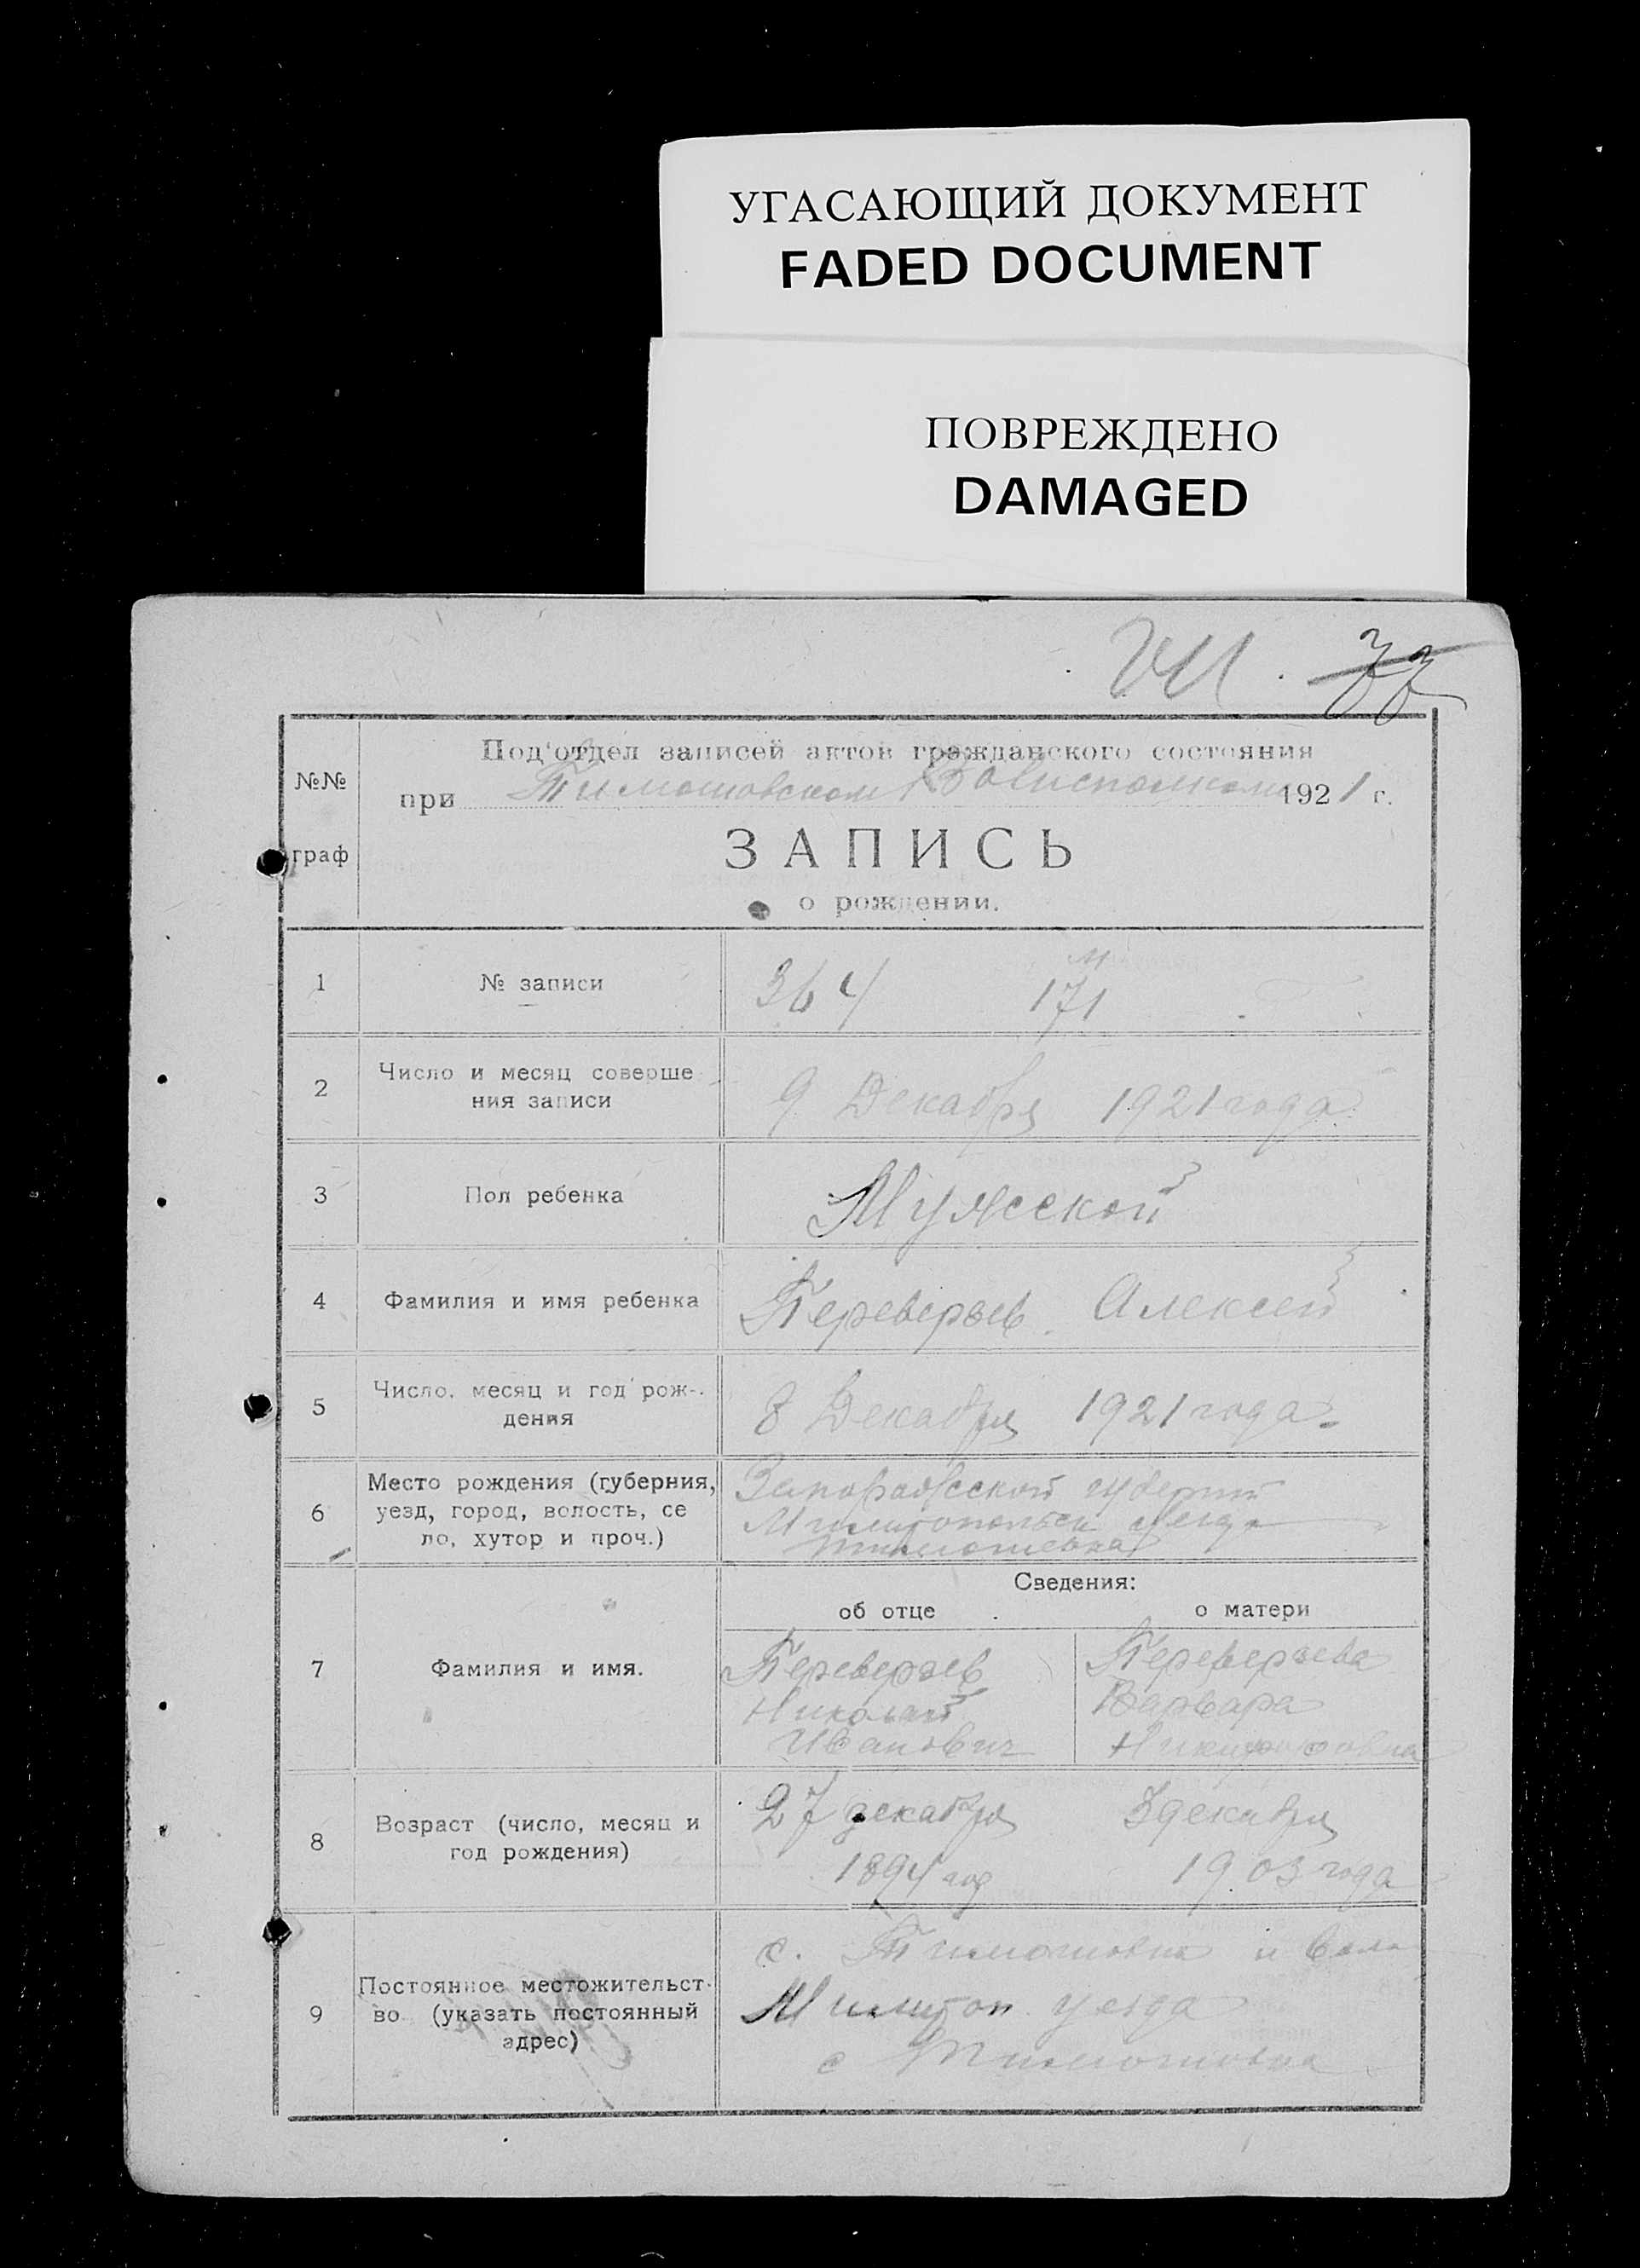 УГАСАЮЩИЙ ДОКУМЕНТ
FADED DOCUMENT
ПОВРЕЖДЕНО
DAMAGED
Под'отдел записей актов гражданского состояния
№№
при Тимошовском Волисполкоме 1921 г.
ЗАПИСЬ
граф
о рождении.
1 № записи 364 м
171
2 Число и месяц соверше
ния записи 9 Декабря 1921 года
3 Пол ребенка Мужской
4 Фамилия и имя ребенка Переверзев Алексей
5 Число, месяц и год рож-
дения 8 Декабря 1921 года
6 Место рождения (губерния, Запорожской губернии
уезд, город, волость, се Милитопольск уезда
ло, хутор и проч.) Тимошевка
Сведения:
об отце о матери
7 Фамилия и имя. Переверзев Переверзева
Николай Варвара
Иванович Никифоровна
8 Возраст (число, месяц и 27 декабря 3 декабря
год рождения) 1894 год 1903 года
9 Постоянное местожительст- с. Тимошовка и воло
во (указать постоянный Милитоп уезда
адрес) с Тимошовка